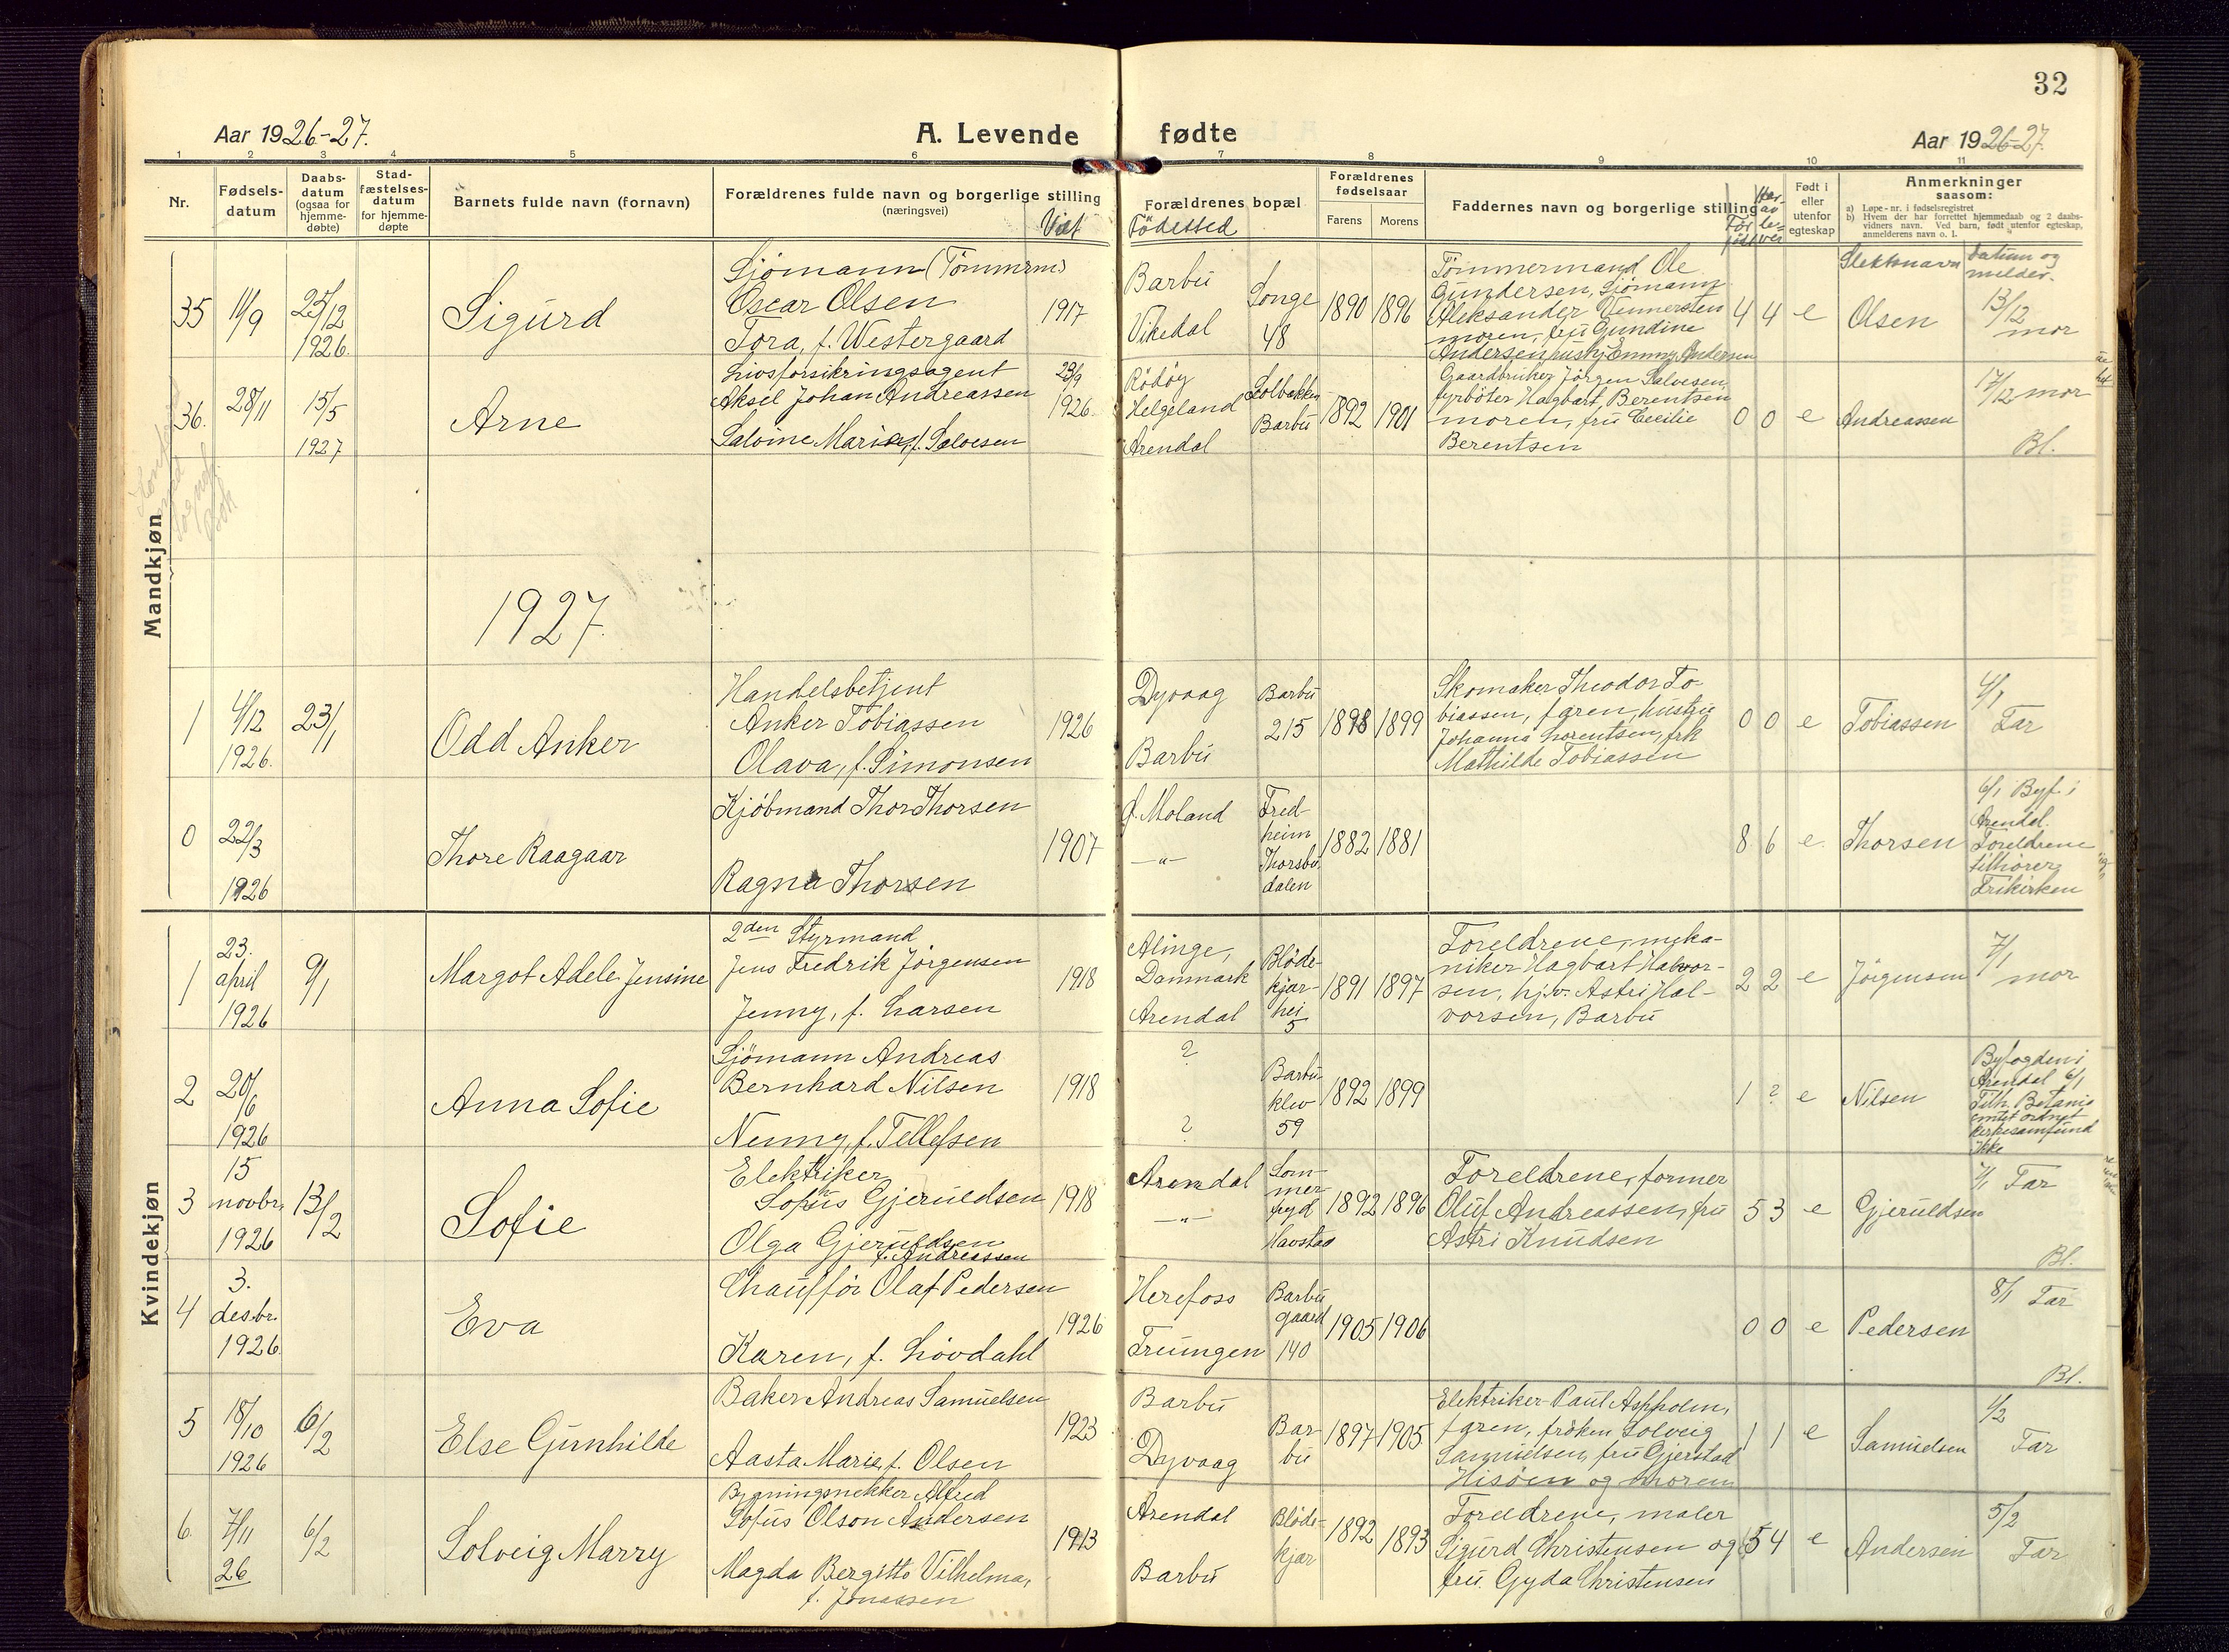 32
Aar 1926-27.
A. Levende fødte
Aar 1926-27.
1 2 3 4 5 6 7 8 9 10 11
Nr.
Fødsels-
datum
Daabs-
datum
(ogsaa for
hjemme-
døbte)
Stad-
fæstelses-
datum
for hjemme-
døpte
Barnets fulde navn (fornavn)
Forældrenes fulde navn og borgerlige stilling
(næringsvei)
Viet
Forældrenes bopæl
Födested
Forældrenes
fødselsaar
Farens
Morens
Faddernes navn og borgerlige stilling
Født i
eller
utenfor
egteskap
Anmerkninger
saasom:
a) Løpe-nr. i fødselsregistret
b) Hvem der har forrettet hjemmedaab og 2 daabs-
vidners navn. Ved barn, født utenfor egteskap,
anmelderens navn o. l.
Slektsnavn
datum og
melder.
Mandkjøn
35
11/9
25/12
1926.
Sigurd
Sjömann (Tömmerm)
Oscar Olsen
Tora, f. Westergaard
1917
Barbu
Vikedal
Songe
48
1890
1896
Tömmermand Ole
Gundersen, Sjömann
Aleksander Vennersten
moren, fru Gundine
Andersen, huskj Emmy Andersen
4 4 e
Olsen
13/12
mor
36.
28/11
15/5
1927
Arne
Livsforsikringsagent
Aksel Johan Andreassen
Salvine Marie, f. Salvesen
23/9
1926.
Rödöy
Helgeland
Arendal
Solbakken
Barbu
1892
1901
Gaardbruker Jörgen Salvesen,
fyrböter Hagbart Berentsen
moren, fru Cecilie
Berentsen
0 0 e
Andreassen
17/12 mor
Bl.
1927.
1
4/12
1926.
23/1
Odd Anker
Handelsbetjent
Anker Tobiassen
Olava, f. Simonsen
1926
Dyvaag
Barbu
Barbu
215
1898
1899
Skomaker Theodor To-
biassen, faren, hustru
Johanna Lorentsen, frk
Mathilde Tobiassen
0 0 e
Tobiassen
4/1
Far
0
22/3
1926
Thore Raagaar
Kjöbmand Thor Thorsen
Ragna Thorsen
1907
Ö. Moland
—"—
Fred-
heim
Thorsbu
dalen
1882
1881
8 6 e.
Thorsen
6/1 Byf. i
Arendal.
Foreldrene
tilhörer
Frikirken
Kvindekjøn
1
23.
april
1926
9/1
Margot Adele Jensine
2den Styrmand
Jens Fredrik Jörgensen
Jenny, f. Larsen
1918
Alinge,
Danmark
Arendal
Blöde-
kjær-
hei
5
1891
1897
Foreldrene, meka-
niker Hagbart Halvor-
sen, hj.v. Astri Hal-
vorsen, Barbu
2 2 e
Jörgensen
7/1
mor
2
20/6
1926
Anna Sofie
Sjömann Andreas
Bernhard Nilsen
Nenny, f. Tellefsen
1918
?
?
Barbu-
klev
59
1892
1899
1 ? e
Nilsen
Byfogden i
Arendal 6/1
Tilh. Betania
ordnet
kirkesamfund
ikke
3
15
novbr.
1926
13/2
Sofie
Elektriker
Sofus Gjeruldsen
Olga Gjeruldsen
f. Andreassen
1918
Arendal
—"—
Som-
mer-
fryd
Havstad
1892
1896
Foreldrene, former
Oluf Andreassen, fru
Astri Knudsen
5 3 e
Gjeruldsen
7/1 Far
Bl.
4
3.
desbr.
1926.
Eva
Chaufför Olaf Pedersen
Karen, f. Lövdahl
1926
Herefoss
Treungen
Barbu
gaard
140
1905
1906
0 0 e
Pedersen
8/1 Far
Bl.
5
18/10
1926
6/2
Else Gunhilde
Baker Andreas Samuelsen
Aasta Marie, f. Olsen
1923
Barbu
Dyvaag
Bar-
bu
1897
1905
Elektriker Paul Aspholm,
faren, fröken Solveig
Samuelsen, fru Gjerstad
Hisöen og moren
1 1 e
Samuelsen
1/2
Far
6.
7/11
26
6/2
Solveig Marry
Bygningsnekker Alfred
Sofus Olson Andersen
Magda Bergitte Vilhelma,
f. Jonassen
1913
Arendal
Barbu
Blöde-
kjær
1892
1893
Foreldrene, maler
Sigurd Christensen og
fru Gyda Christensen
5 4 e
Andersen
5/2
Far